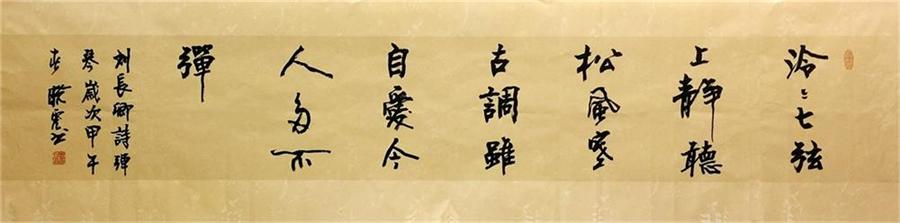 泠々七弦
上静聽
松風寒
古調雖
自愛今
人多不
彈
刘長卿詩弹
琴歲次甲午
春